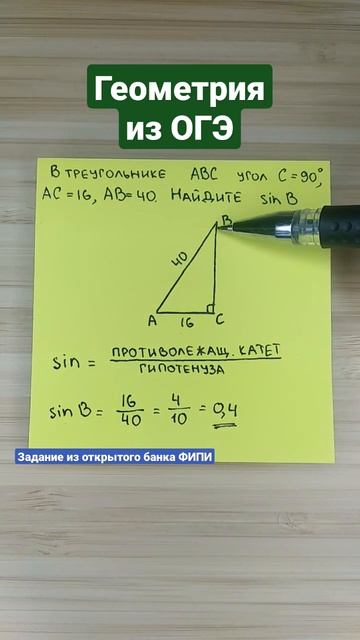 Геометрия
из ОГЭ
В ТРЕУГОЛЬНИКЕ ABC УГОЛ C = 90°,
AC = 16, AB = 40. НАЙДИТЕ sin B
B
40
A
16
C
sin = ПРОТИВОЛЕЖАЩ. КАТЕТ / ГИПОТЕНУЗА
sin B = 16/40 = 4/10 = 0,4
Задание из открытого банка ФИПИ